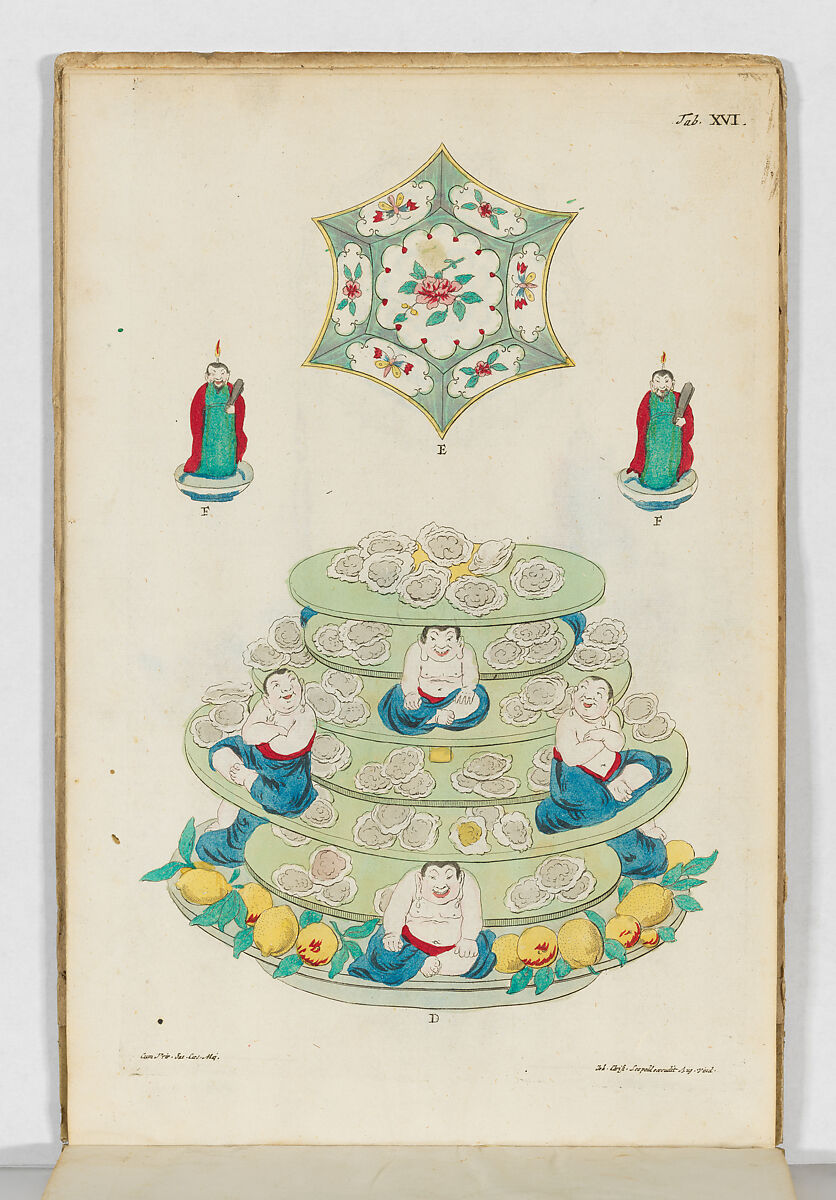 Tab. XVI.
E
F
F
D
Cum Priv. Sac. Cæs. Maj.
Joh. Christ. Leopold excudit Aug. Vind.